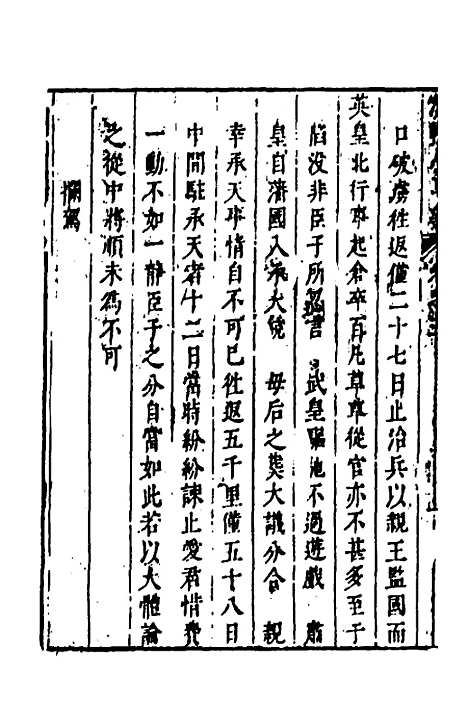 口破虜往返僅二十七日止治兵以親王監國而
英皇北行事起倉卒百凡草草從官亦不甚多至于
陷沒非臣子所忍言 武皇驅馳不過遊戲 肅
皇自藩國入承大統 母后之葬大議分合 親
幸承天事情自不可已往返五千里僅五十八日
中間駐承天者十二日當時紛紛諫止愛君惜費
一動不如一靜臣子之分自當如此若以大體論
之從中將順未為不可
攔駕